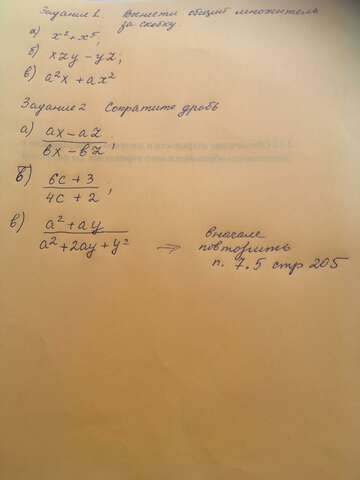 Задание 1. Вынести общий множитель
за скобку.
а) x² + x⁵;
б) xzy - yz;
в) a²x + ax²
Задание 2 Сократите дробь
а) ax - az
bx - bz ;
б) 6c + 3
4c + 2 ,
в) a² + ay
a² + 2ay + y²
⇒ вначале
повторить
п. 7.5 стр 205